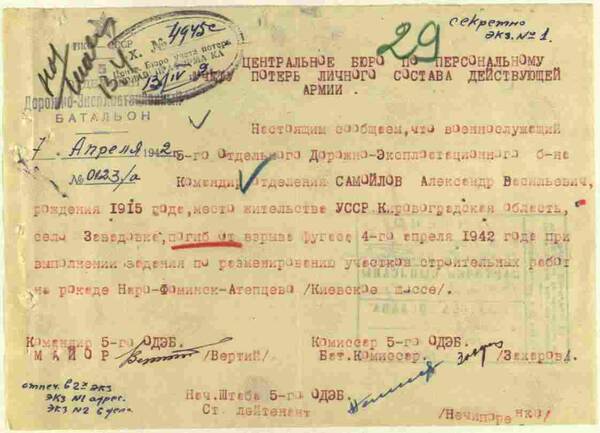 секретно
экз. № 1.
29
НКО СССР
ВХ. № 4945с
Центр. Бюро учета потерь
5
Дорожно-Эксплоатационный
БАТАЛЬОН
7. Апреля 1942 г.
№ 0123/а
ЦЕНТРАЛЬНОЕ БЮРО ПО ПЕРСОНАЛЬНОМУ
УЧЕТУ ПОТЕРЬ ЛИЧНОГО СОСТАВА ДЕЙСТВУЮЩЕЙ
АРМИИ.
Настоящим сообщаем, что военнослужащий
5-го Отдельного Дорожно-Эксплоатационного б-на
Командир отделения САМОЙЛОВ Александр Васильевич,
рождения 1915 года, место жительства УССР Кировоградская область,
село Заведовка, погиб от взрыва фугаса 4-го апреля 1942 года при
выполнении задания по разминированию участков строительных работ
на рокаде Наро-Фоминск-Атепцево /Киевское шоссе/.
Командир 5-го ОДЭБ.
МАЙОР /Вертий/
Комиссар 5-го ОДЭБ.
Бат. Комиссар. /Захаров/.
отпеч. в 2х экз
экз № 1 адрес.
экз № 2 в дело
Нач. Штаба 5-го ОДЭБ.
Ст. лейтенант /Нечипоренко/